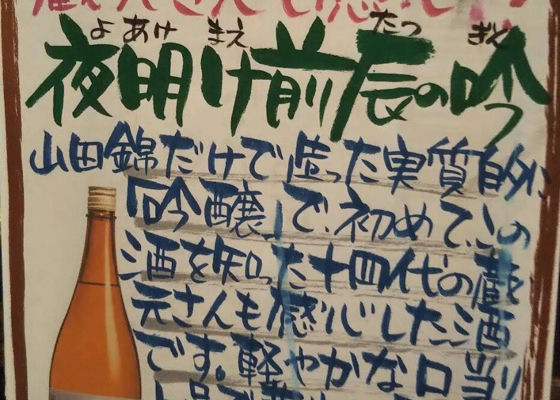 よあけ まえ たつ ぎん
夜明け前辰の吟
山田錦だけで造った実質的に
「吟醸」で、初めて、この
酒を知った十四代の蔵
元さんも感心した酒
です。軽やかな口当り